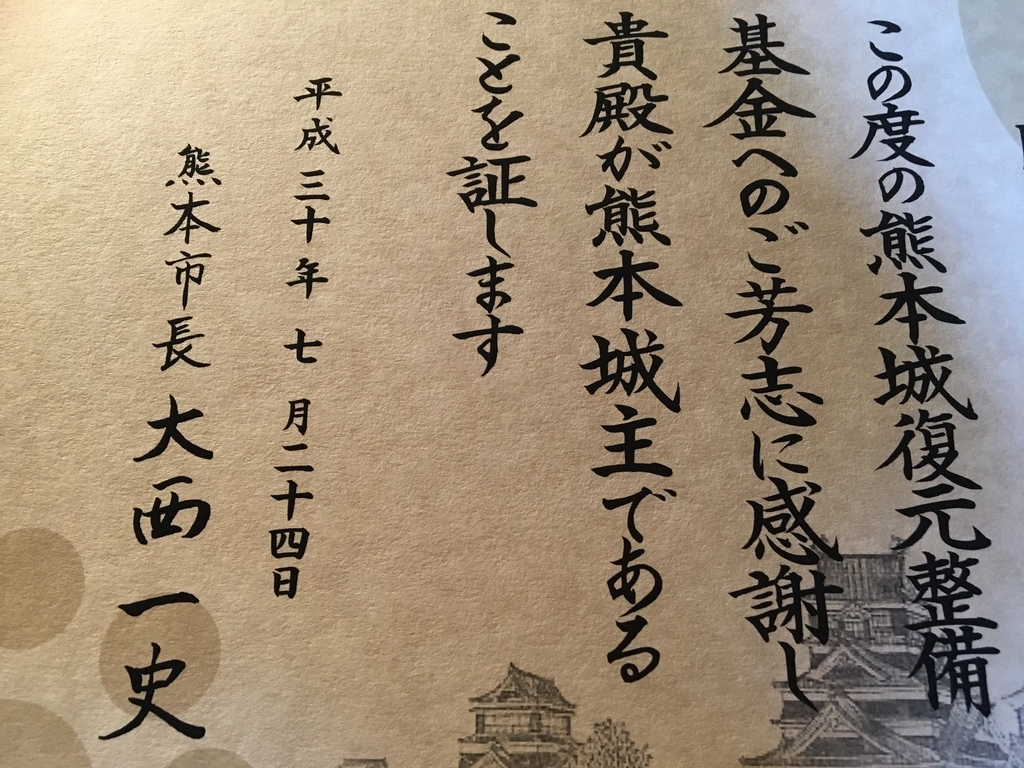 この度の熊本城復元整備
基金へのご芳志に感謝し
貴殿が熊本城主である
ことを証します
平成三十年七月二十四日
熊本市長 大西一史